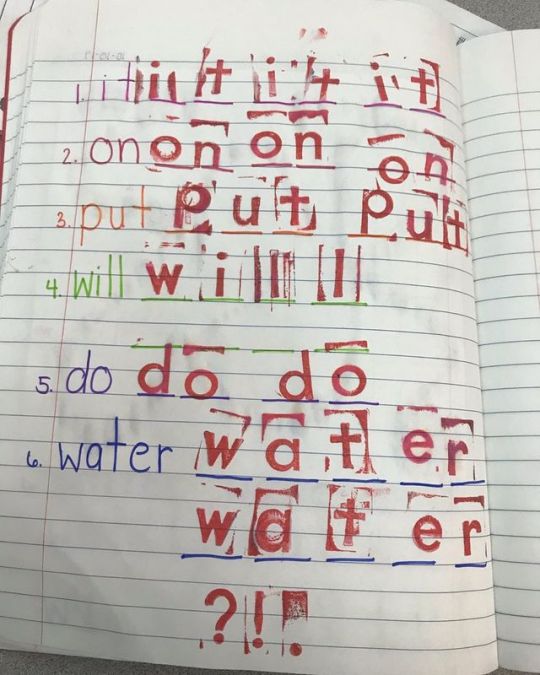 1. it it it it
2. on on on on
3. put put put
4. will will
5. do do do
6. water water
water
?!.